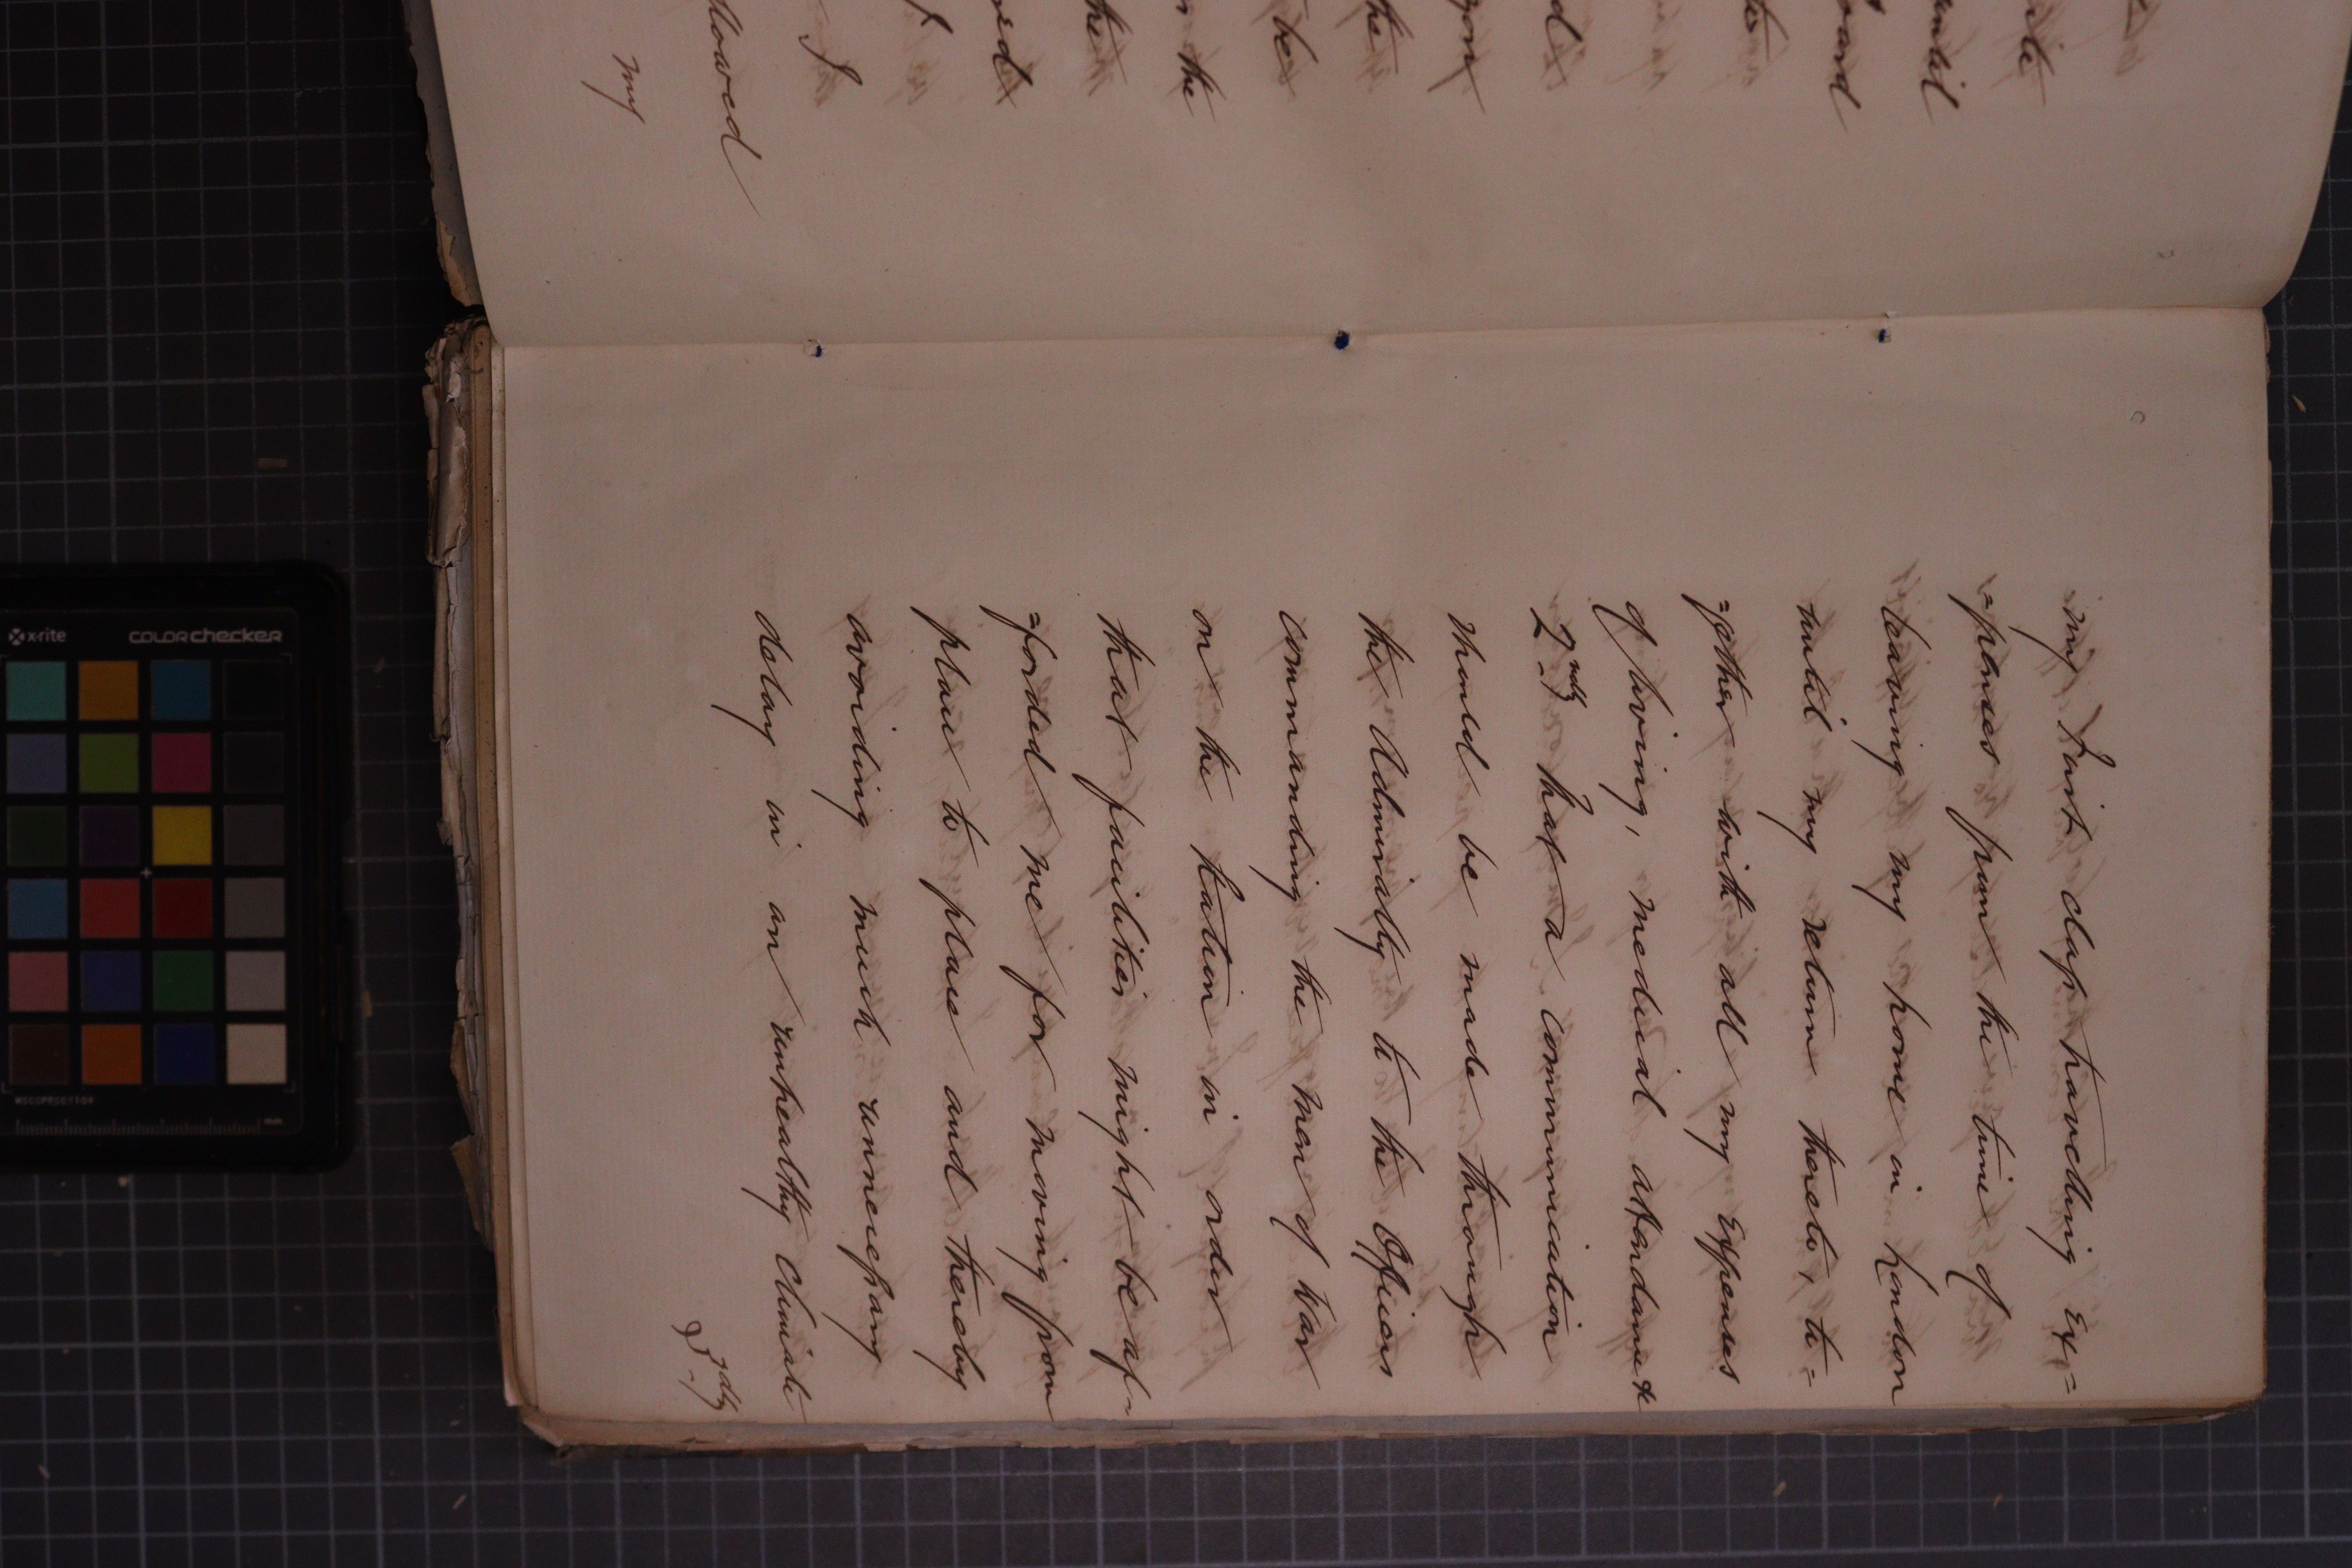 ile
until
ward
to
d
gon
the
be
n the
the
red
f
I
llowed
my
my first class travelling Ex=
=penses from the time of
leaving my home in London
until my return thereto, to=
=gether with all my Expenses
of living, medical attendance &c
2ndly That a communication
should be made through
the Admiralty to the Officers
commanding the Men of War
on the Station in order
that facilities might be af=
=forded me for moving from
place to place and thereby
avoiding much unnecessary
delay in an unhealthy Climate
3rdly
x-rite
colorchecker
MSCCPPCC1109
mm